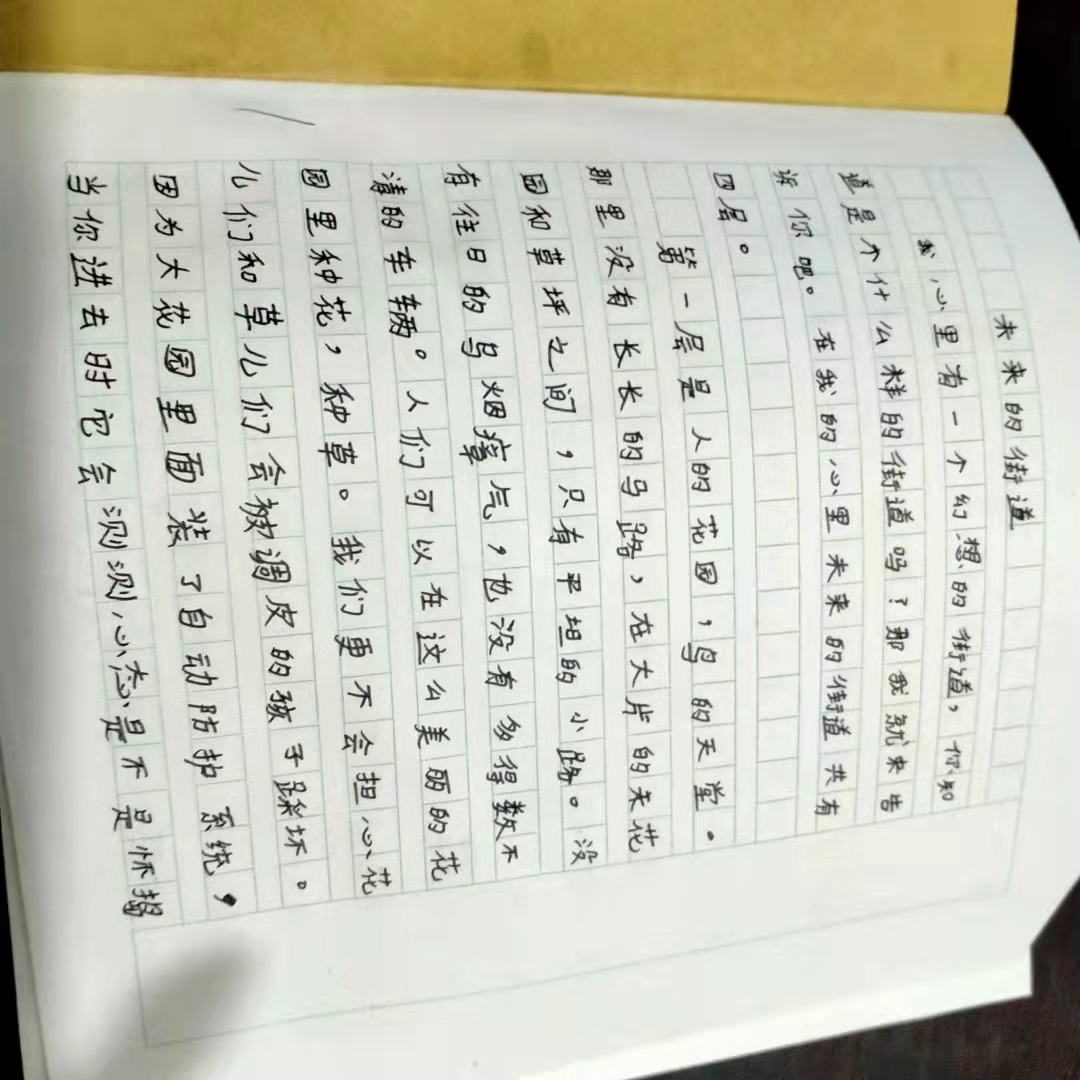 未来的街道
我心里有一个幻想的街道，你知
道是个什么样的街道吗？那我就来告
诉你吧。在我的心里未来的街道共有
四层。
第一层是人的花园，鸟的天堂。
那里没有长长的马路，在大片的未花
园和草坪之间，只有平坦的小路。没
有往日的乌烟瘴气，也没有多得数不
清的车辆。人们可以在这么美丽的花
园里种花，种草。我们更不会担心花
儿们和草儿们会被调皮的孩子踩坏。
因为大花园里面装了自动防护系统，
当你进去时它会测测心态是不是怀揣